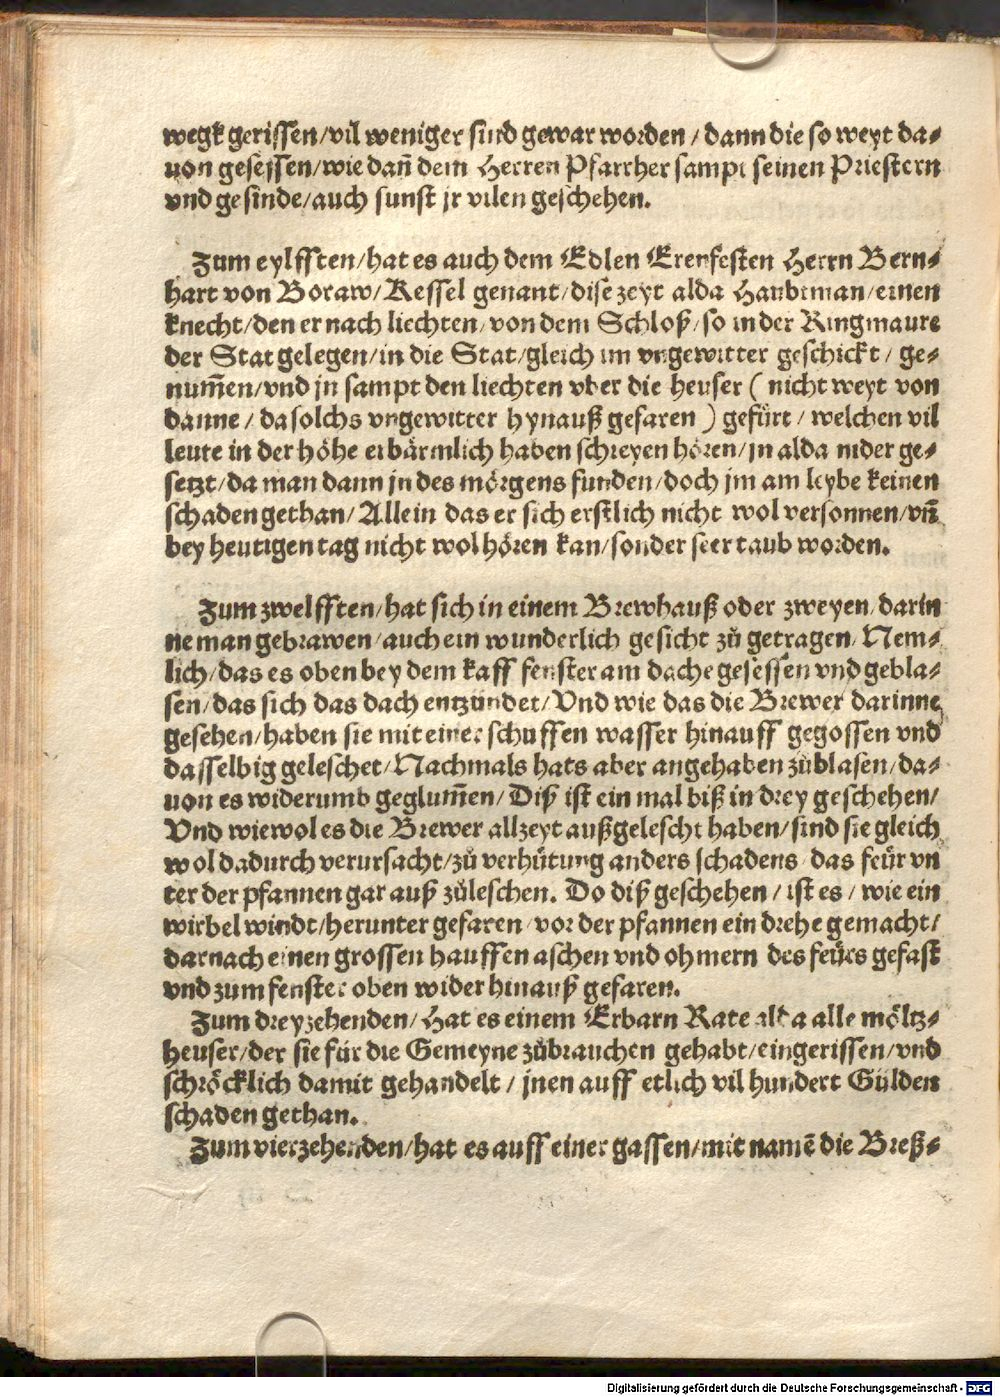 wegk gerissen/vil weniger sind gewar worden / dann die so weyt da⸗
uon gesessen/wie dañ dem Herren Pfarrher sampt seinen Priestern
vnd gesinde/auch sunst jr vilen geschehen.
Zum eylfften/hat es auch dem Edlen Erenfesten Herrn Bern⸗
hart von Boraw/Kessel genant/dise zeyt alda Haubtman/einen
knecht/den er nach liechten/von dem Schloß/so in der Ringmaure
der Stat gelegen/in die Stat/gleich im vngewitter geschickt/ ge⸗
num̃en/vnd jn sampt den liechten vber die heuser ( nicht weyt von
danne / da solchs vngewitter hynauß gefaren ) gefürt / welchen vil
leute in der höhe erbärmlich haben schreyen hören/jn alda nider ge⸗
setzt/da man dann jn des mörgens funden/doch jm am leybe keinen
schaden gethan/Allein das er sich erstlich nicht wol versonnen/vñ
bey heutigen tag nicht wol hören kan/sonder seer taub worden.
Zum zwelfften/hat sich in einem Brewhauß oder zweyen/darin
ne man gebrawen/auch ein wunderlich gesicht zů getragen/Nem⸗
lich/das es oben bey dem kaff fenster am dache gesessen vnd gebla⸗
sen/das sich das dach entzündet/Vnd wie das die Brewer darinne
gesehen/haben sie mit einer schuffen wasser hinauff gegossen vnd
dasselbig geleschet/Nachmals hats aber angehaben zůblasen/da⸗
uon es widerumb geglum̃en/Diß ist ein mal biß in drey geschehen/
Vnd wiewol es die Brewer allzeyt außgelescht haben/sind sie gleich
wol dadurch verursacht/zů verhütung anders schadens/das feür vn
ter der pfannen gar auß zůleschen. Do diß geschehen / ist es / wie ein
wirbel windt/herunter gefaren/vor der pfannen ein drehe gemacht/
darnach einen grossen hauffen aschen vnd ohmern des feürs gefast
vnd zum fenster oben wider hinauß gefaren.
Zum dreyzehenden/Hat es einem Erbarn Rate alda alle möltz⸗
heuser/der sie für die Gemeyne zůbrauchen gehabt/eingerissen/vnd
schröcklich damit gehandelt / jnen auff etlich vil hundert Gülden
schaden gethan.
Zum vierzehenden/hat es auff einer gassen/mit namẽ die Breß⸗
Digitalisierung gefördert durch die Deutsche Forschungsgemeinschaft - DFG